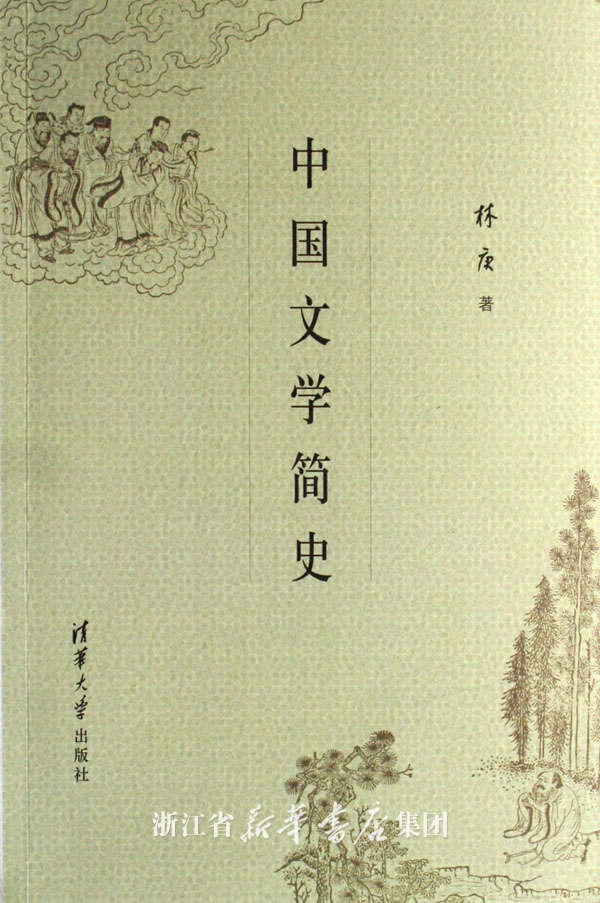 中国文学简史
林庚 著
清华大学出版社
浙江省新华书店集团